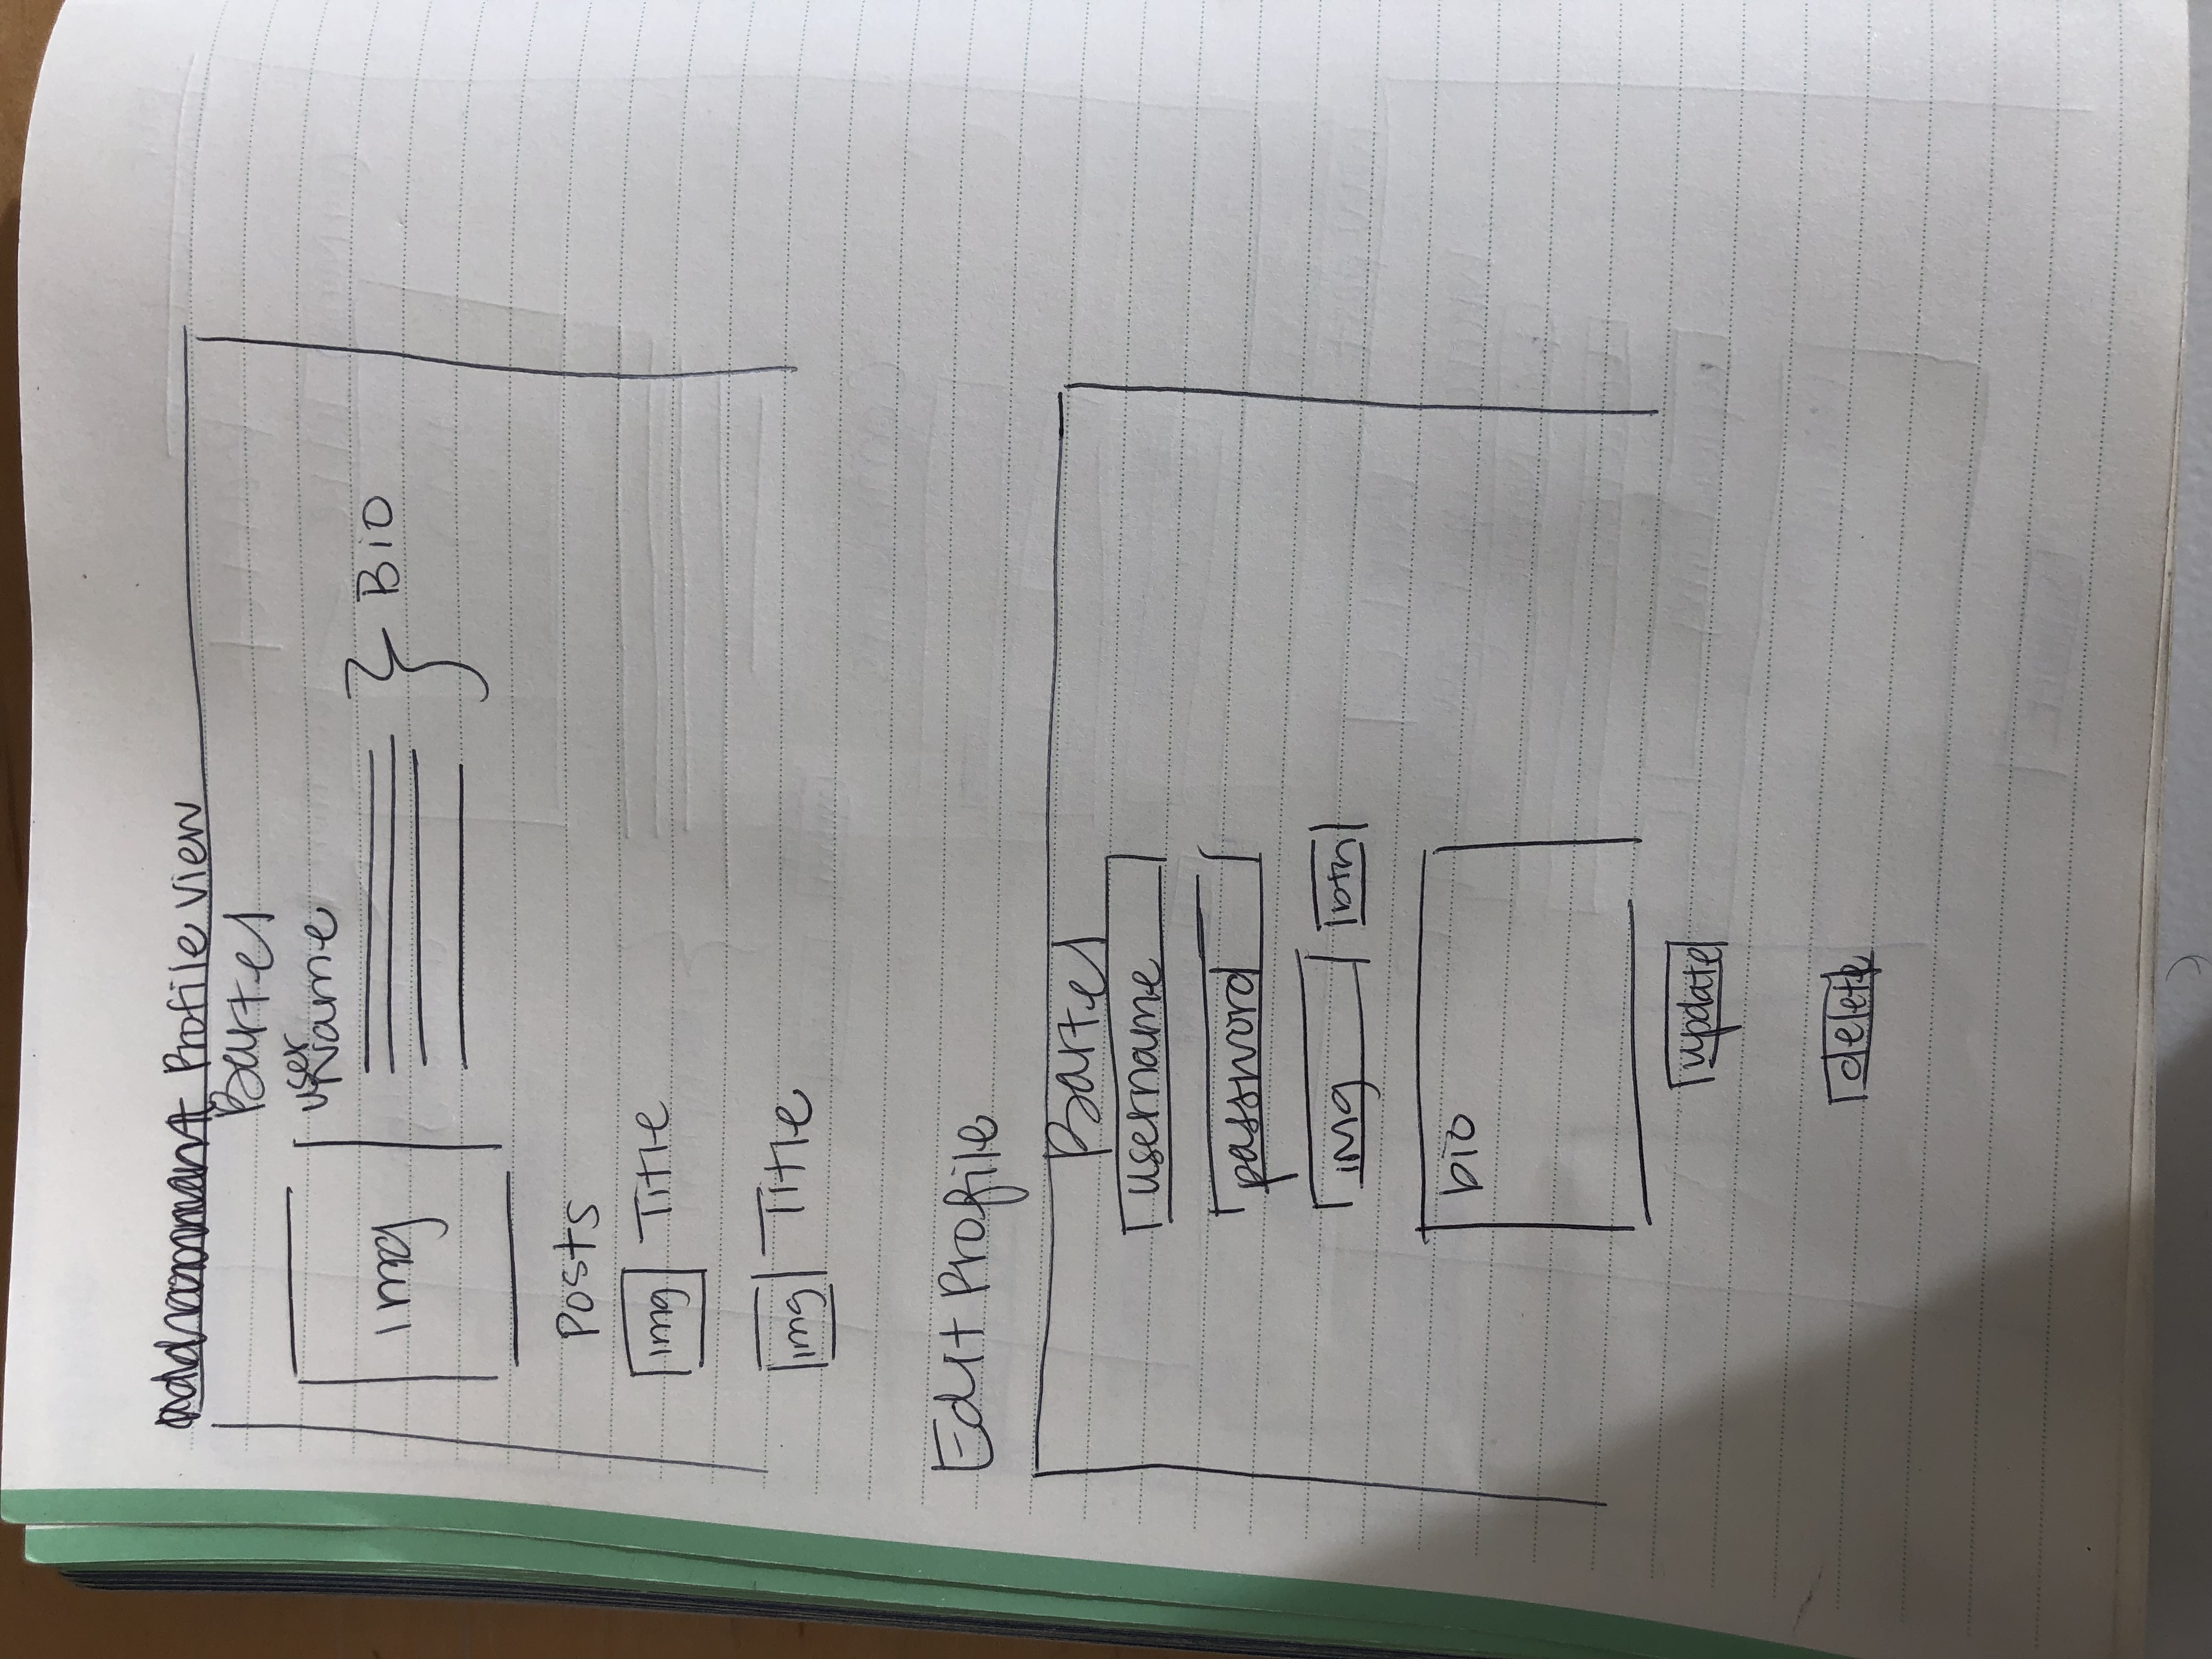 Profile View
Barter
user
Name
img
Bio
Posts
img Title
img Title
Edit Profile
Barter
username
password
img btn
bio
update
delete